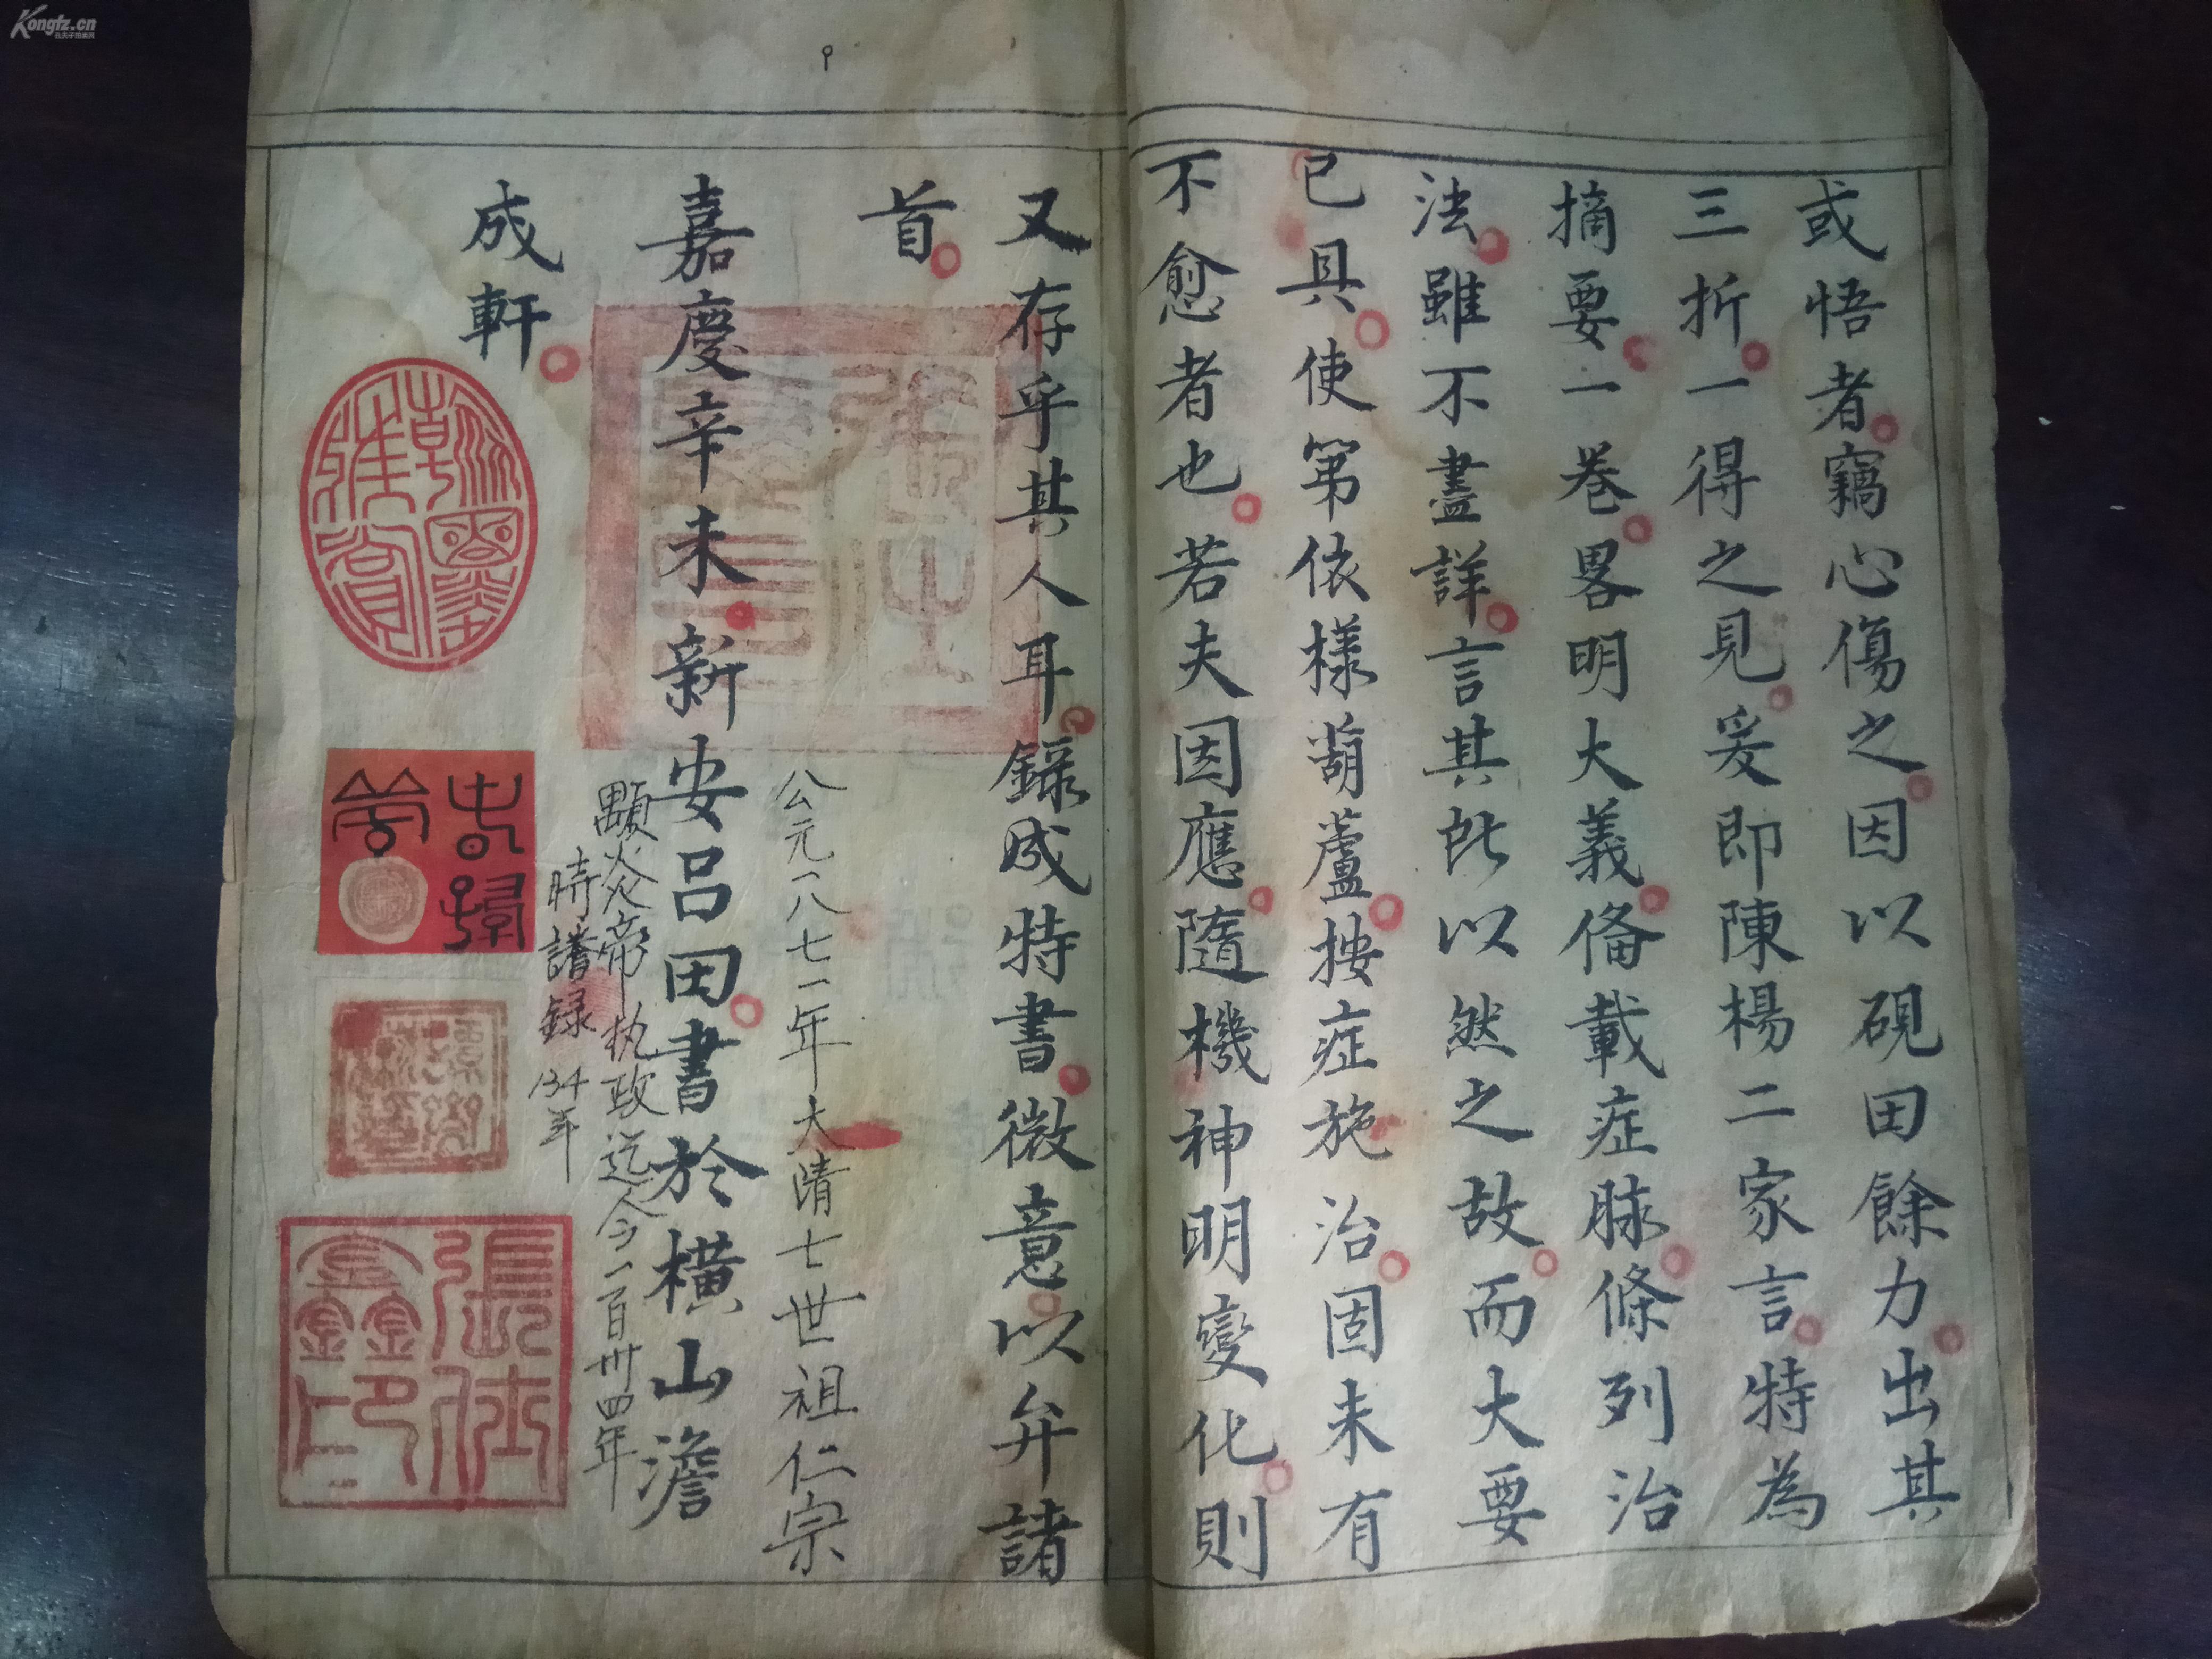 或悟者竊心傷之因以硯田餘力出其
三折一得之見爰即陳楊二家言特為
摘要一卷畧明大義俻載症脉條列治
法雖不盡詳言其所以然之故而大要
已具使第依樣葫蘆按症施治固未有
不愈者也若夫因應隨機神明變化則
又存乎其人耳錄成特書微意以弁諸
首
嘉慶辛未新安呂田書於橫山澹
成軒
公元一八七一年大清七世祖仁宗
顒炎帝执政迄今一百卅四年
時謄録 134年
張仕鑫印
Kongfz.cn